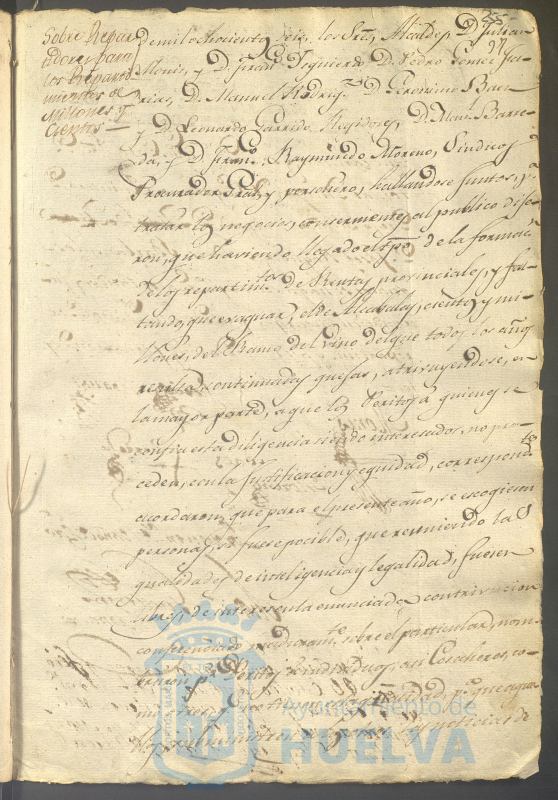 255
Sobre Repar
tidores para
los Repartimientos de
Millones y
Cientos
De mil ochocientos seis, los Sres. Alcaldes Dn. Julian
Monis, y Dn. Fran.co Izquierdo Dn. Pedro Gomez
Dn. Manuel Rodrig.z Dn. Geronimo
y Dn. Leonardo Garrido Regidores, Dn. Man.l Barre
da, y Dn. Fran.co Raymundo Moreno, Sindicos
Procurador Gral. y personero, hallandose juntos, p.a
tratar los negocios, conserniente, al publico dije
ron, que haviendo llegado el tpo. de la formac.n
de los repartim.tos de Rentas provinciales, y fal
tando, que evaquar, el de Alcabalas, ciento, y mi
llones, del Ramo del vino del que todos los años
resultan continuadas quejas, atribuyendose, en
la mayor parte, a que los Peritos a quienes se
confia esta diligencia siendo interesados, no pro
ceden, con la justificacion y equidad, correspond.te
acordaron que para el presente año, se escogiesen
personas, si fuere pocible, que reuniendo las
qualidades de inteligencia y legalidad, fuesen
libres de interes en la enunciada contrivucion
conferenciado maduram.te sobre el particular, nom
braron p.r Peritos
Ayuntamiento de
HUELVA